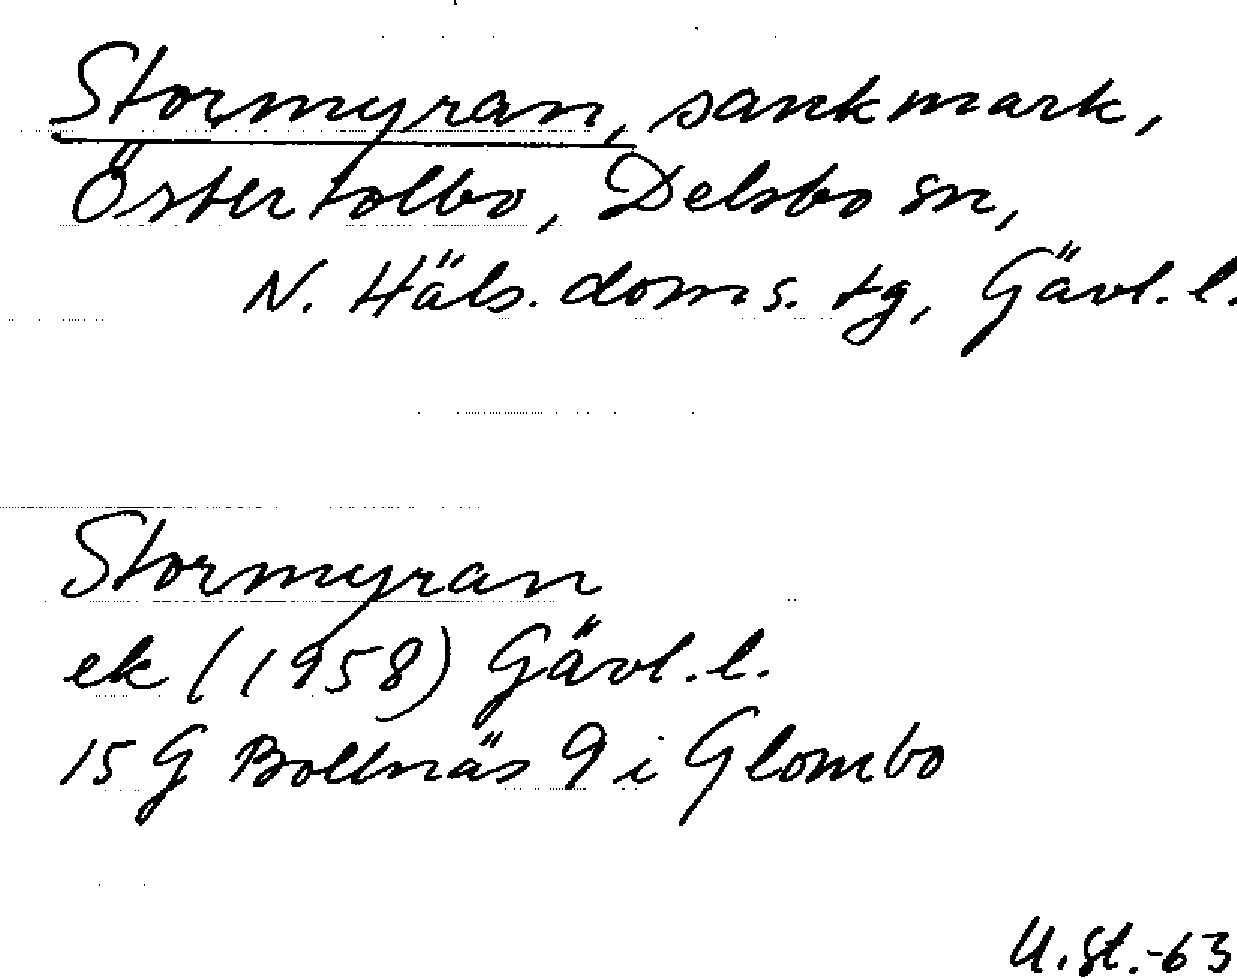 Stormyran, sankmark,
Östertolbo, Delsbo sn,
N. Häls. doms. tg, Gävl. l.
Stormyran
ek (1958) Gävl. l.
15 G Bollnäs 9 i Glombo
U. St. -63